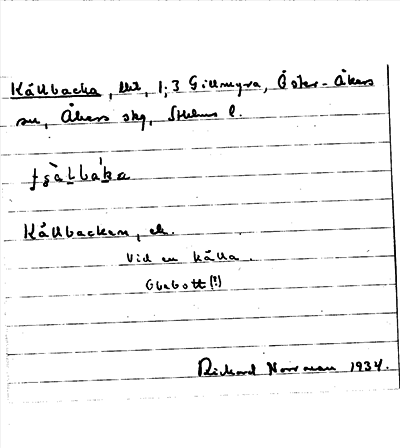 Källbacka, lht, 1:3 Gillmyra, Öster-Åkers
sn, Åkers skg, Sthlms l.
Källbacken, ek.
Vid en källa.
Obebott (!)
Rickard Norrman 1934.